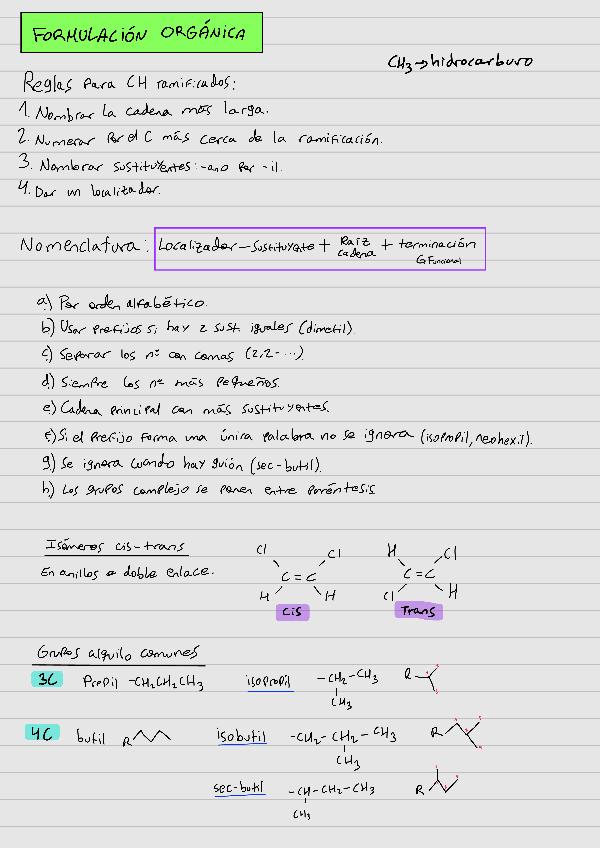 FORMULACIÓN ORGÁNICA
CH3→hidrocarburo
Reglas para CH ramificados:
1. Nombrar la cadena más larga.
2. Numerar por el C más cerca de la ramificación.
3. Nombrar sustituyentes: -ano por -il.
4. Dar un localizador.
Nomenclatura: Localizador - sustituyente + raíz cadena + terminación G Funcional
a) Por orden alfabético.
b) Usar prefijos si hay 2 sust. iguales (dimetil)
c) Separar los nº con comas (2,2-...)
d) Siempre los nº más pequeños.
e) Cadena principal con más sustituyentes.
f) Si el prefijo forma una única palabra no se ignora (isopropil, neohexil).
g) Se ignora cuando hay guión (sec-butil).
h) Los grupos complejo se ponen entre paréntesis
Isómeros cis-trans
En anillos o doble enlace.
Cl Cl H Cl
C=C C=C
H H Cl H
Cis Trans
Grupos alquilo comunes
3C Propil -CH2CH2CH3 isopropil -CH2-CH3 R
CH3
4C butil R isobutil -CH2-CH2-CH3 R
CH3
sec-butil -CH-CH2-CH3 R
CH3